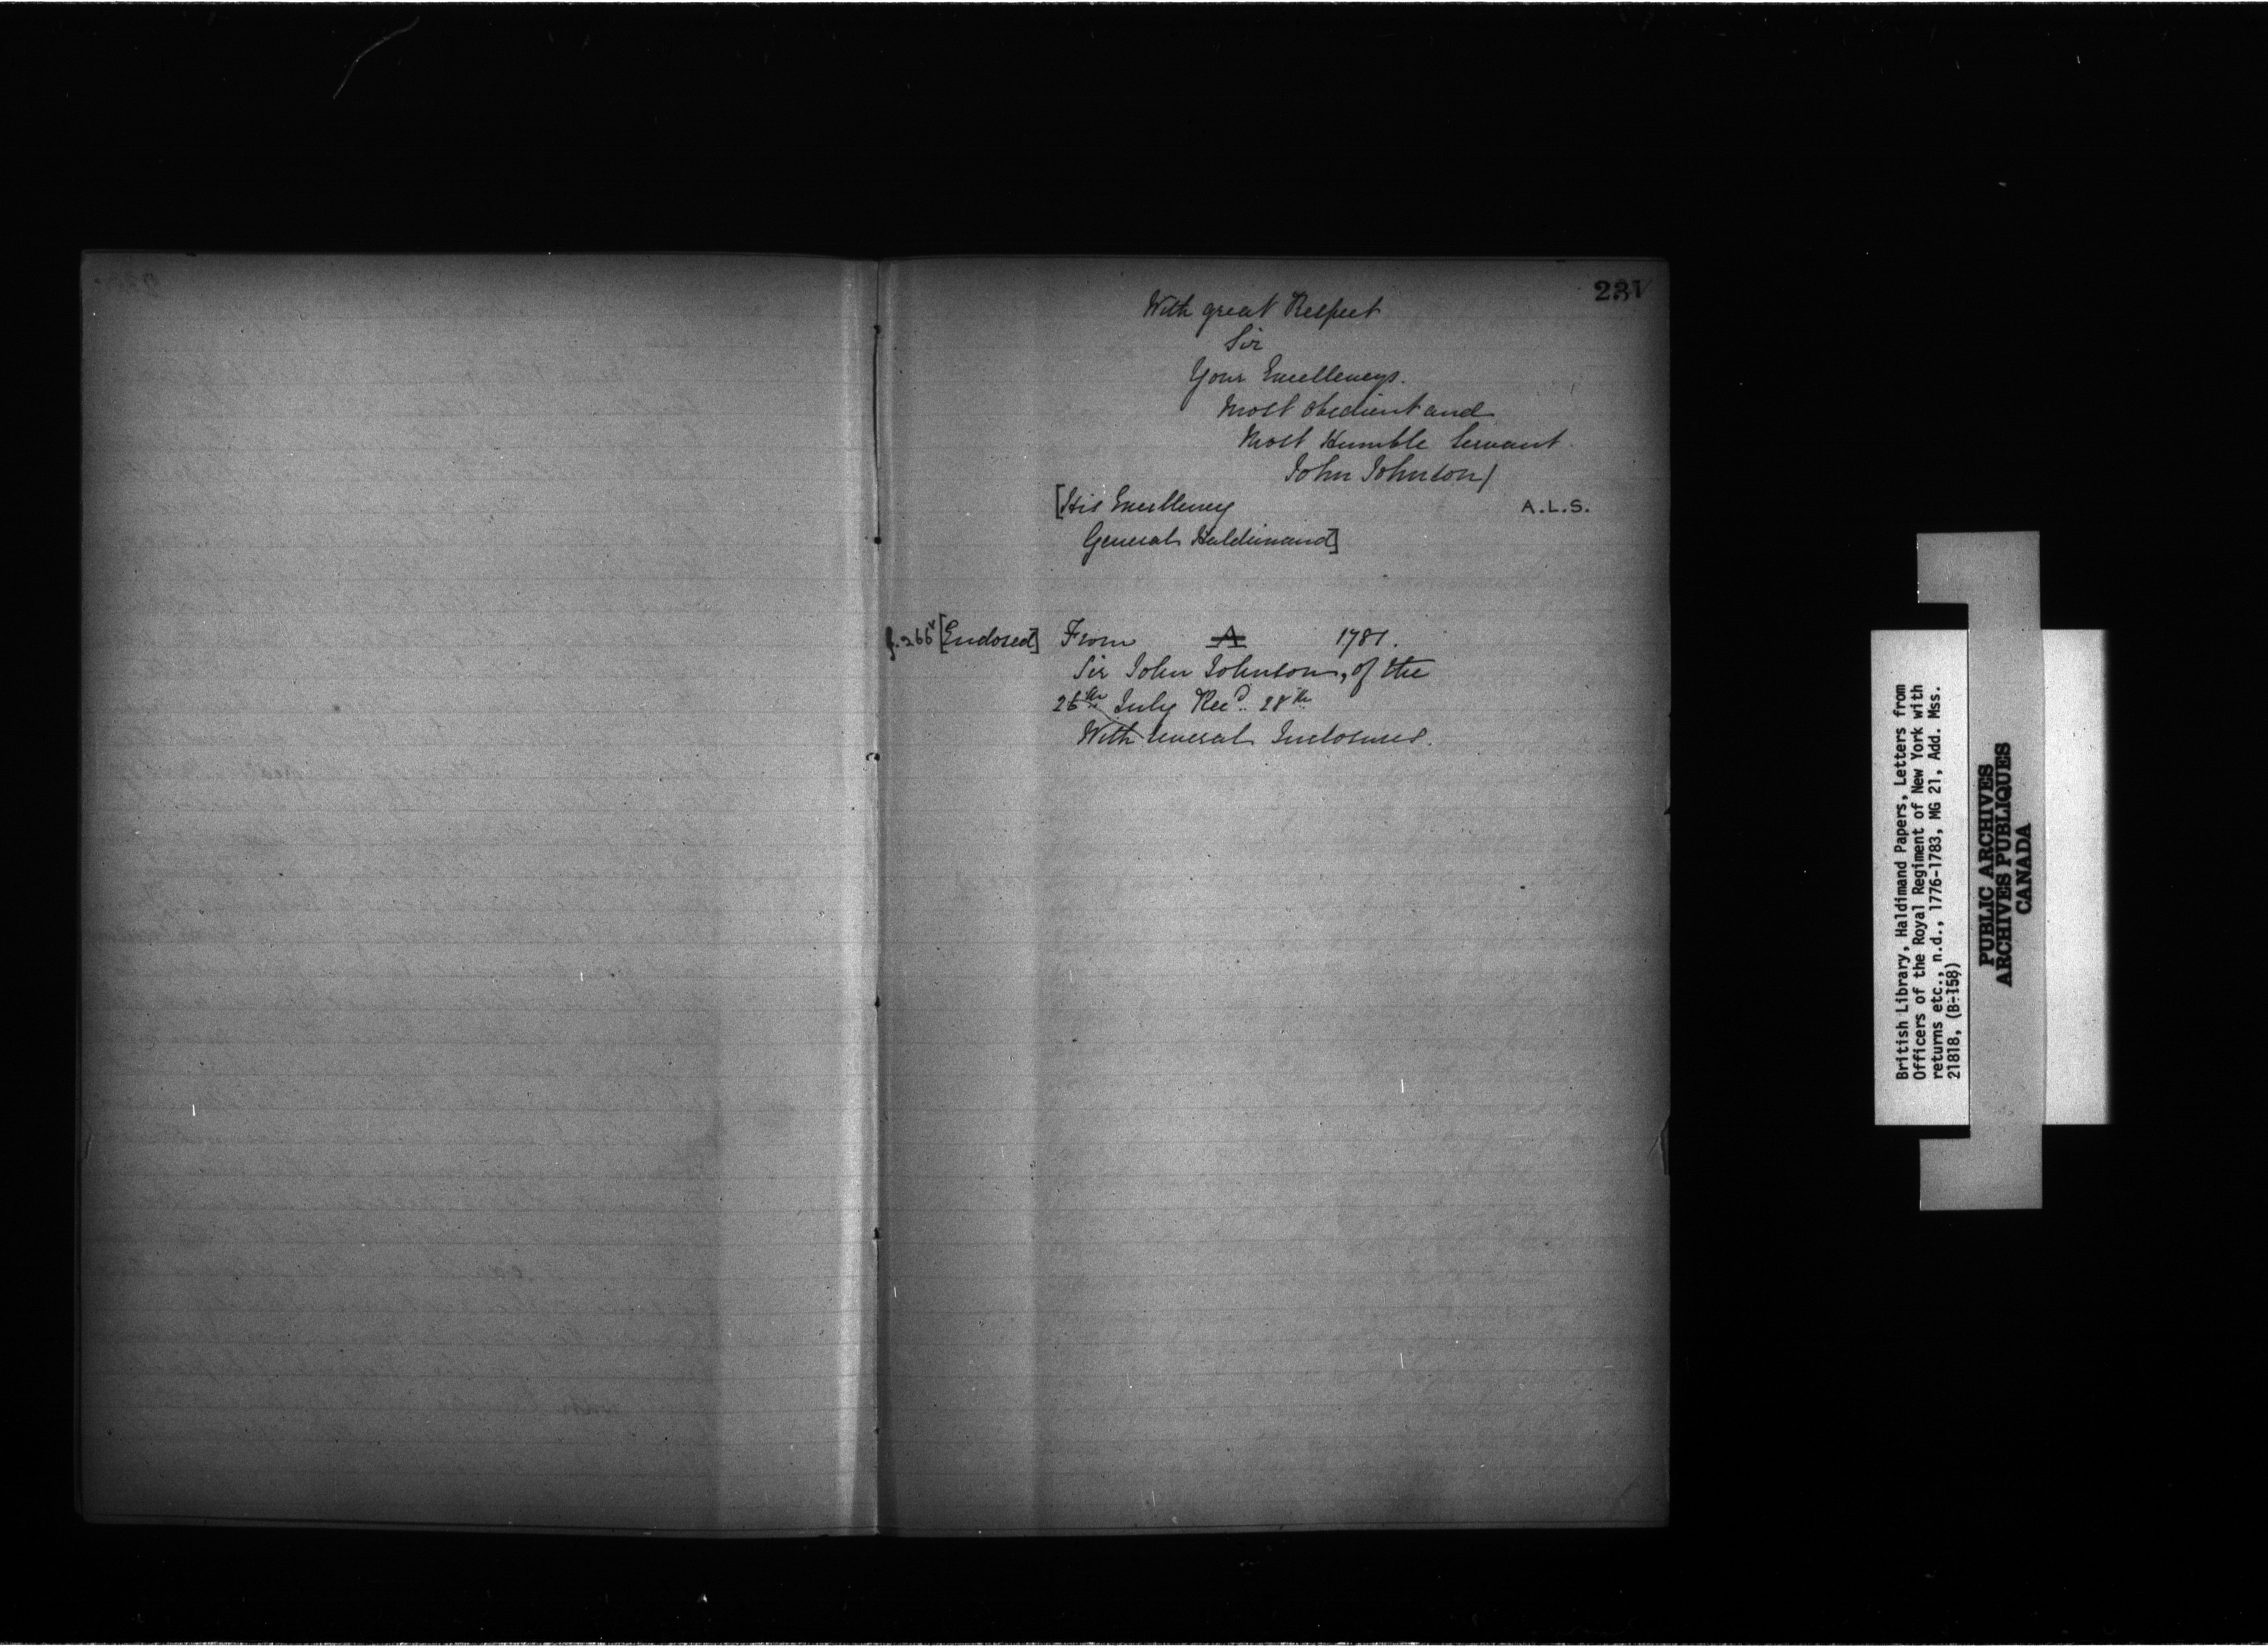 231
With great Respect
Sir
Your Excellencys.
Most obedient and
Most Humble Servant
John Johnson/
[His Excellency
A.L.S.
General Haldimand]
f.266v [Endorsed] From A 1781.
Sir John Johnson, of the
26th July Recd. 28th
With several Inclosures.
British Library, Haldimand Papers, Letters from
Officers of the Royal Regiment of New York with
returns etc., n.d., 1776-1783, MG 21, Add. Mss.
21818, (B-158)
PUBLIC ARCHIVES
ARCHIVES PUBLIQUES
CANADA